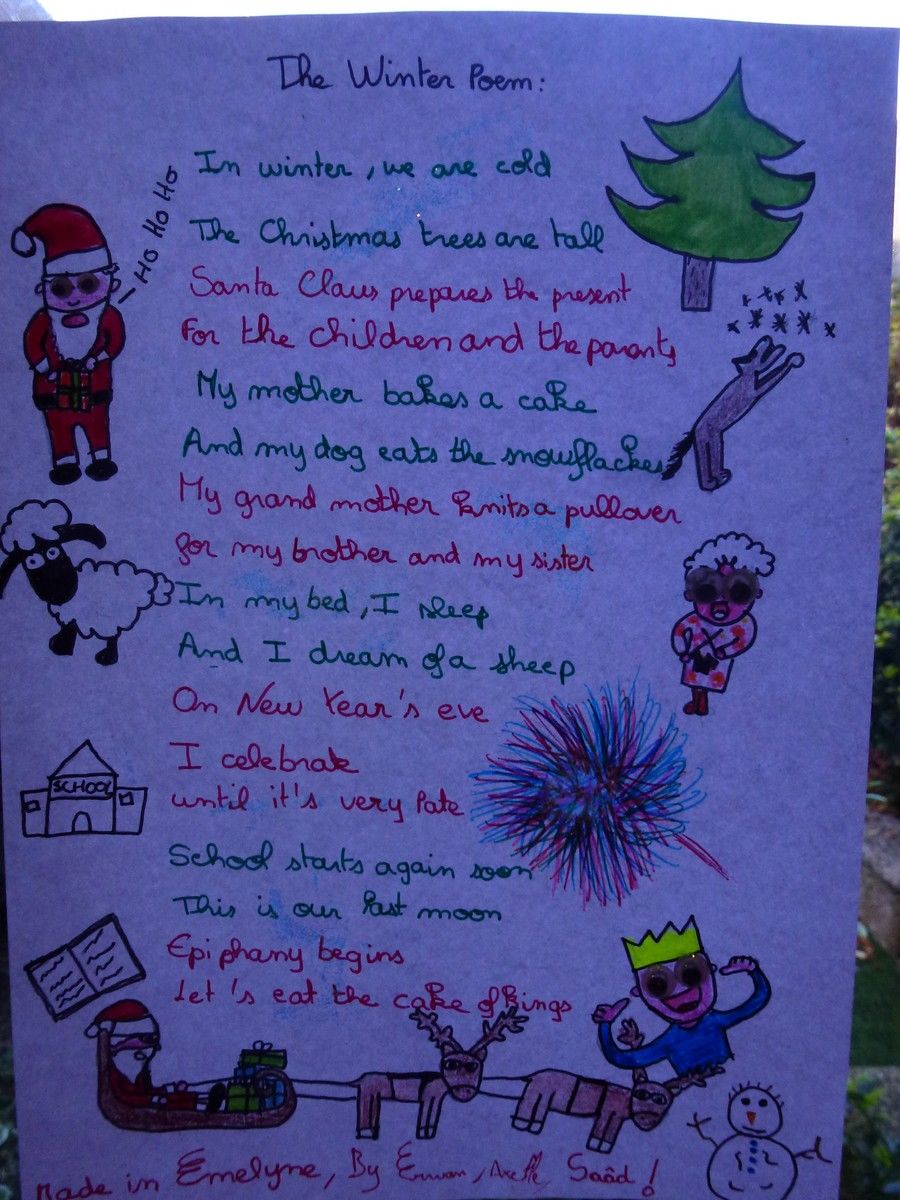 The Winter Poem:
HO HO HO
In winter, we are cold
The Christmas trees are tall
Santa Claus prepares the present
For the children and the parents
My mother bakes a cake
And my dog eats the snowflackes
My grand mother knits a pullover
for my brother and my sister
In my bed, I sleep
And I dream of a sheep
On New Year's eve
I celebrate
until it's very late
SCHOOL
School starts again soon
This is our last moon
Epiphany begins
Let's eat the cake of kings
Made in Emelyne, By Erwan, Saâd!